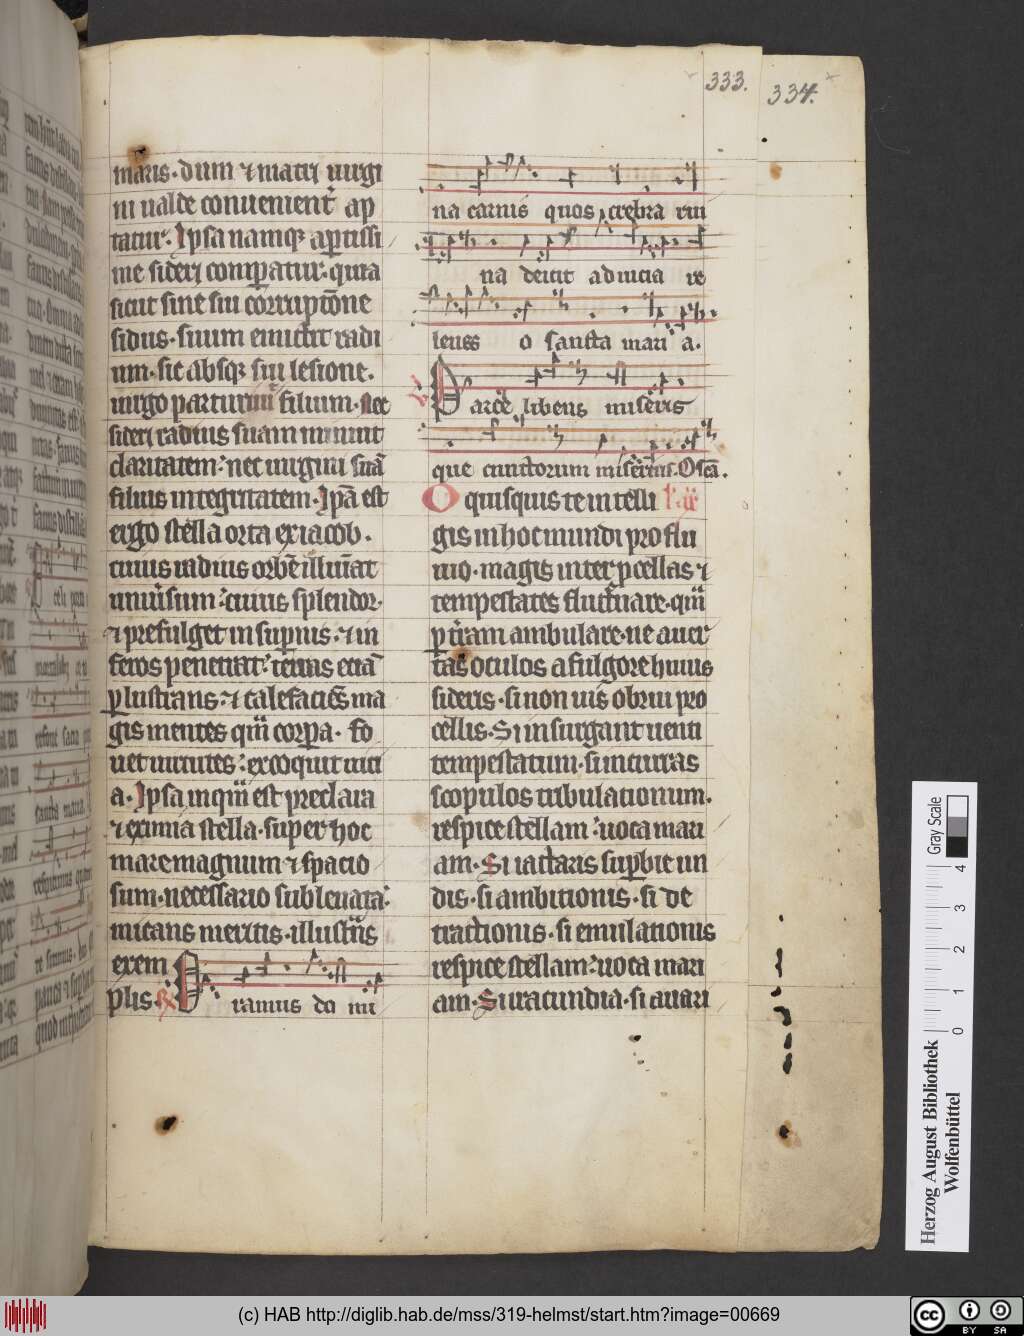 333.
334.
maris. dum ⁊ matri uirgi
ni ualde conuenient᷑ ap
tatur. Ipsa namq; aptissi
me sideri conparatur. quia
sicut sine sui corruptōne
sidus. suum emittit radi
um. sic absq; sui lesione.
uirgo parturiuit filium. Nec
sideri radius suam minuit
claritatem. nec uirgini suā
filius integritatem. Ipā est
ergo stella orta ex iacob.
cuius radius orbē illuīat
uniũsum. cuius splendor.
⁊ prefulget in supnis. ⁊ in
feros penetrat. terras etiā
plustrans. ⁊ calefaciēs ma
gis mentes qm̃ corpa. fo
uet uirtutes. excoquit uici
a. Ipsa inqm̃ est preclara
⁊ eximia stella. super hoc
mare magnum ⁊ spacio
sum. necessario subleuata.
micans meritis. illustrās
exem
plis. ramus do mi
na carnis quos crebra rui
na deicit ad uicia re
leuss o sancta mari a.
Parce libens miseris
que cunctorum miseens. O scā.
O quisquis te intelli
gis in hoc mundi proflu
uio. magis inter pcellas ⁊
tempestates fluctuare. qm̃
p t̃ram ambulare. ne auer
tas oculos a fulgore huius
sideris. si non uis obrui pro
cellis. Si insurgant uenti
temptatum. si incurras
scopulos tribulationum.
respice stellam. uoca mari
am. Si iactaris supbie un
dis. si ambitionis. si de
tractionis. si emulationis
respice stellam. uoca mari
am. Si iracundia. si auari
Herzog August Bibliothek
Wolfenbüttel
Gray Scale
0 1 2 3 4
(c) HAB http://diglib.hab.de/mss/319-helmst/start.htm?image=00669
cc BY SA